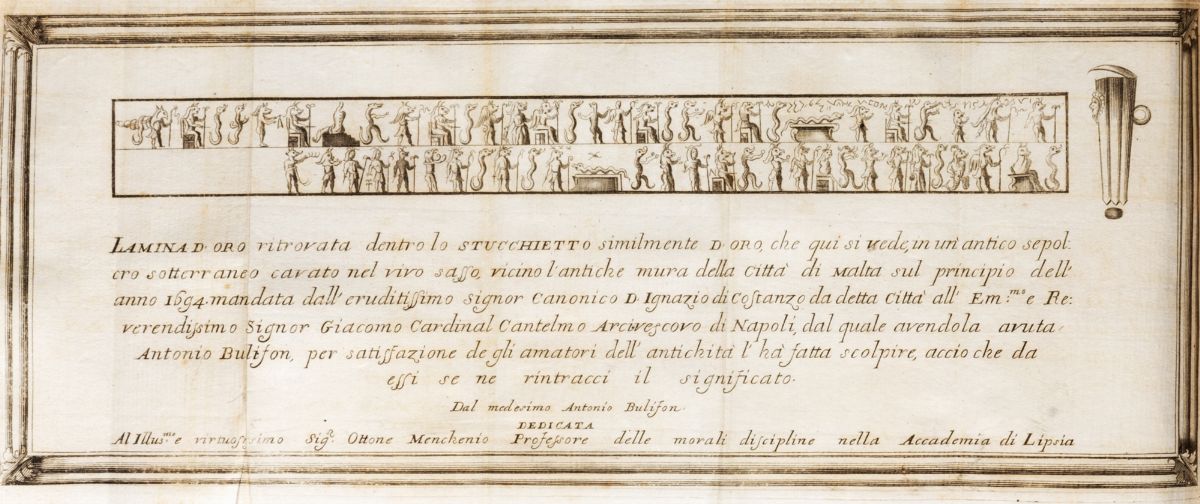 LAMINA D. ORO ritrovata dentro lo STUCCHIETTO similmente D. ORO, che qui si vede, in un' antico sepol:
cro sotterraneo cavato nel vivo sasso, vicino l'antiche mura della Città di MALTA sul principio dell'
anno 1694. mandata dall' eruditissimo Signor Canonico D. Ignazio di Costanzo da detta Città all' Em:mo e Re:
verendissimo Signor Giacomo Cardinal Cantelmo Arcivescovo di Napoli, dal quale avendola avuta
Antonio Bulifon, per satisfazione de gli amatori dell' antichità l' hà fatta scolpire, accio che da
essi se ne rintracci il significato.
Dal medesimo Antonio Bulifon.
DEDICATA
Al Illus:mo e virtuosissimo Sigr. Ottone Menchenio Professore delle morali discipline nella Accademia di Lipsia